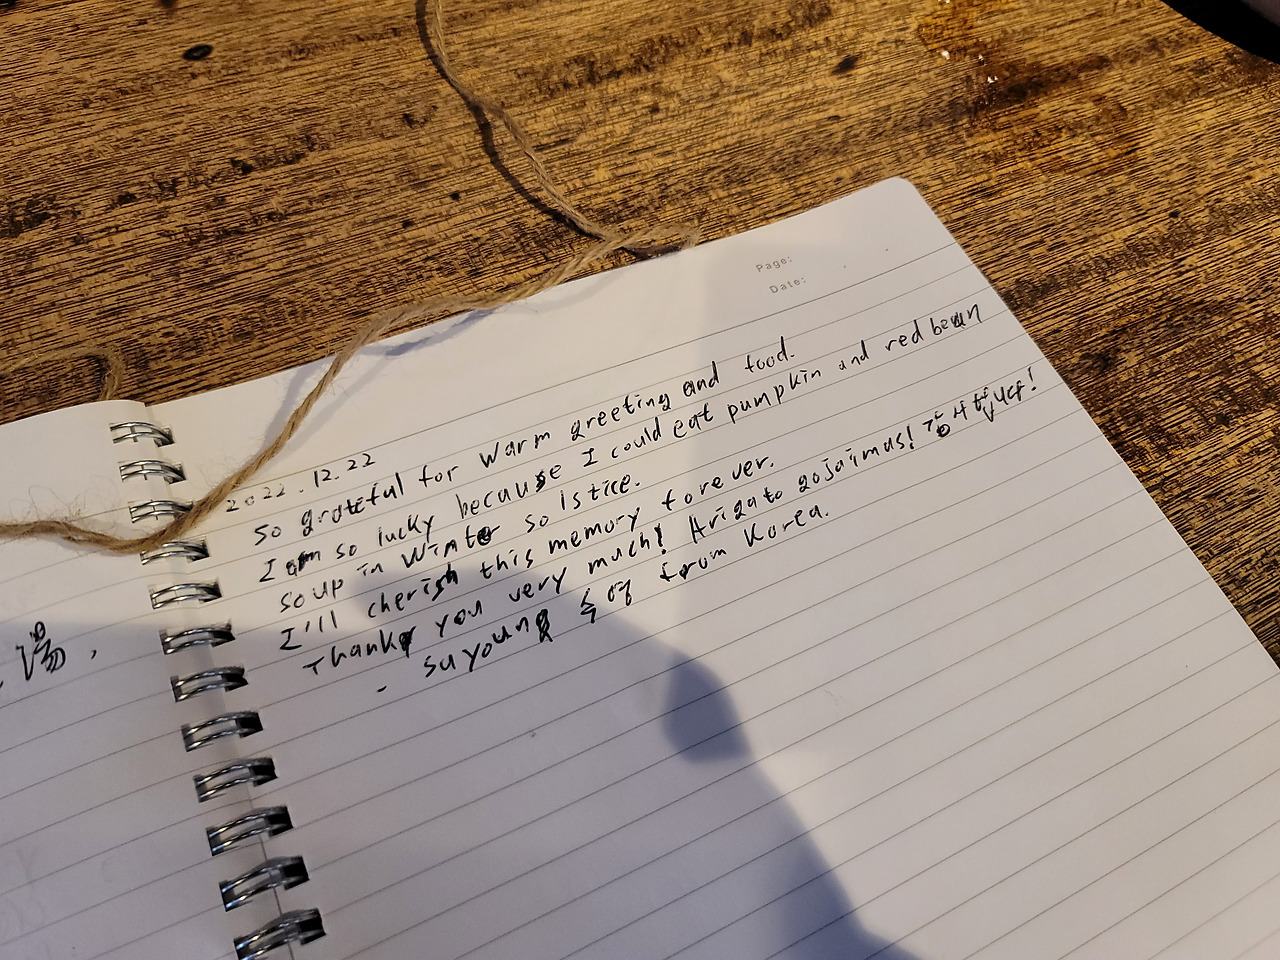 湯,
Page:
Date:
2022.12.22
So grateful for warm greeting and food.
I am so lucky because I could eat pumpkin and red bean
soup in winter solstice.
I'll cherish this memory forever.
Thank you very much! Arigato gojaimas! 감사합니다!
- suyoung 수영 from Korea.